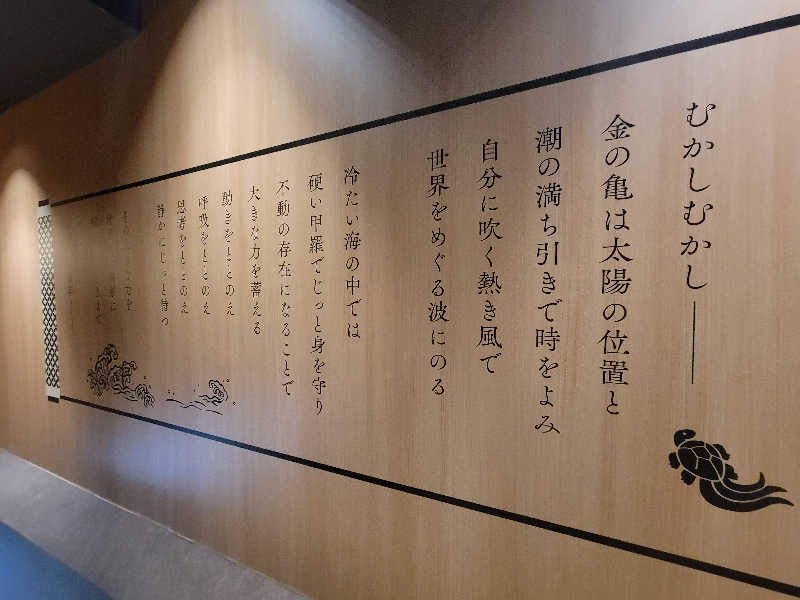 むかしむかし――
金の亀は太陽の位置と
潮の満ち引きで時をよみ
自分に吹く熱き風で
世界をめぐる波にのる
冷たい海の中では
硬い甲羅でじっと身を守り
不動の存在になることで
大きな力を蓄える
動きをととのえ
呼吸をととのえ
思考をととのえ
静かにじっと待つ